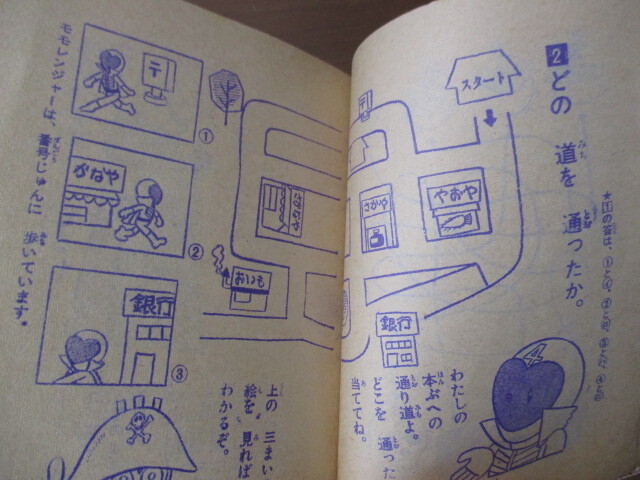 2 どの 道を 通ったか。
★1の答は、
スタート
〒
やおや
さかや
さかなや
おいも
銀行
わたしの
本ぶへの
通り道よ。
どこを 通った
当ててね。
〒
①
かなや
②
銀行
③
モモレンジャーは、番号じゅんに 歩いています。
上の 三まい
絵を 見れば
わかるぞ。